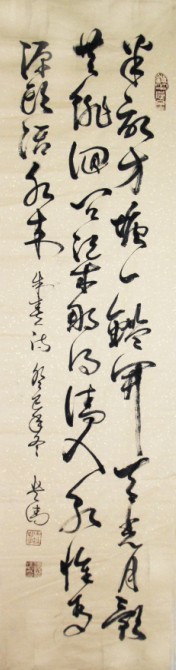 半畝方塘一鑑開天光月影
共徘徊問渠那得清如許惟有
源頭活水來 朱熹詩 癸巳年冬